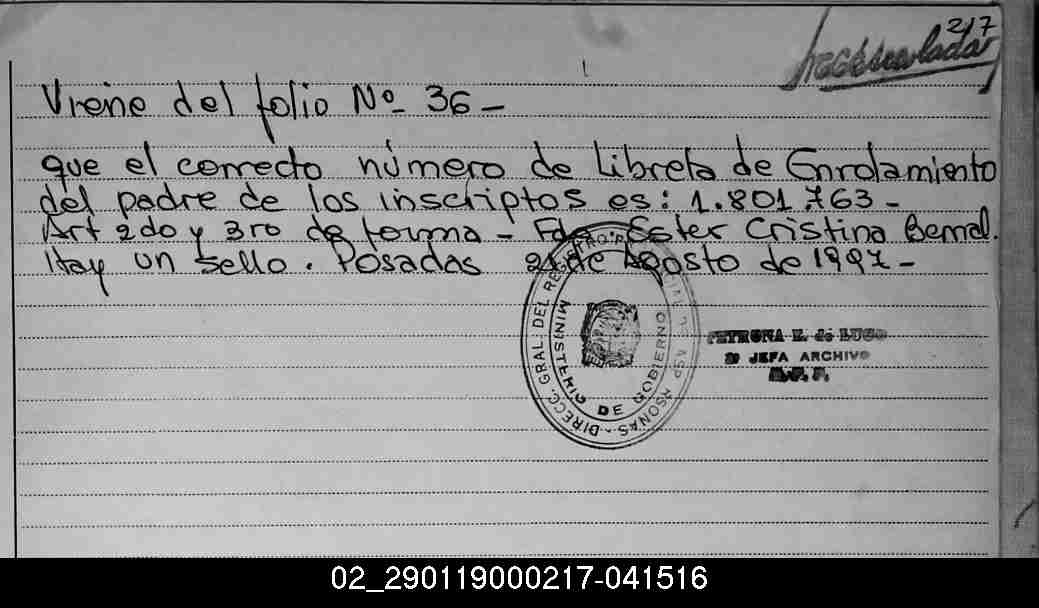 217
Viene del folio Nº- 36 -
que el correcto número de Libreta de Enrolamiento
del padre de los inscriptos es: 1.801.763 -
Art 2do y 3ro de forma - Fdo. Ester Cristina Bernal.
Hay un sello. Posadas 21 de Agosto de 1997 -
DIRECC. GRAL. DEL REGISTRO
MINISTERIO DE GOBIERNO
PETRONA E. de LUGO
JEFA ARCHIVO
02_290119000217-041516